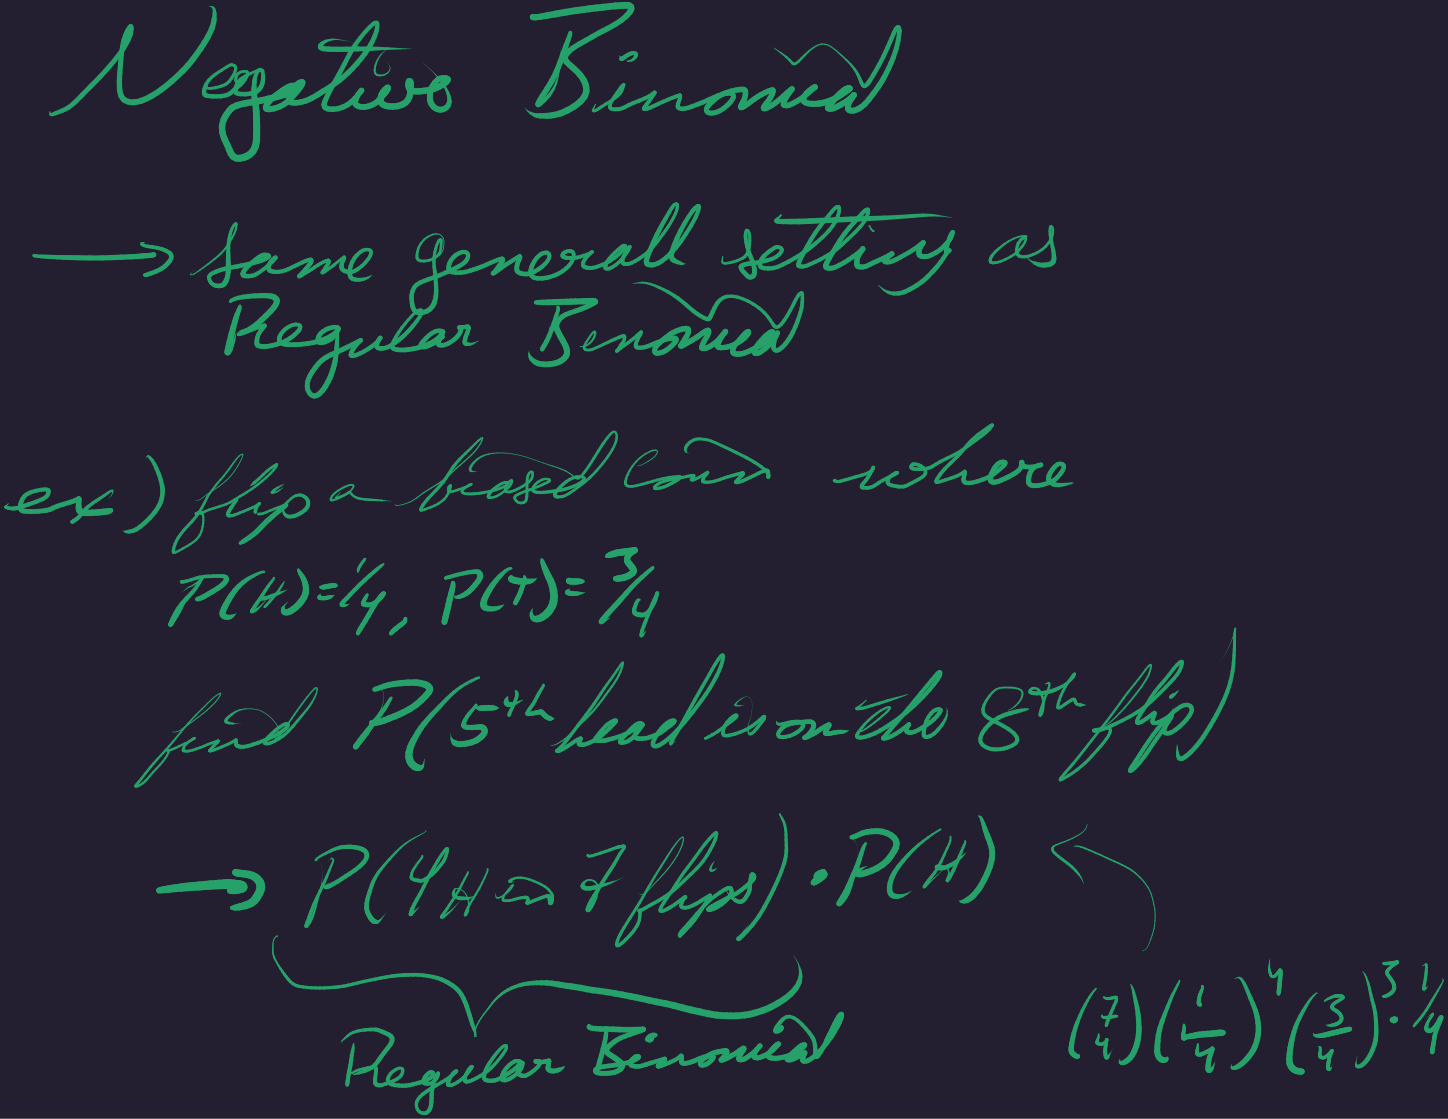 Negative Binomial
→ same generall setting as
Regular Binomial
ex) flip a biased coin where
P(H)=1/4, P(T)=3/4
find P(5th head is on the 8th flip)
→ P(4H in 7 flips) · P(H)
Regular Binomial
(7 4)(1/4)^4(3/4)^3 · 1/4